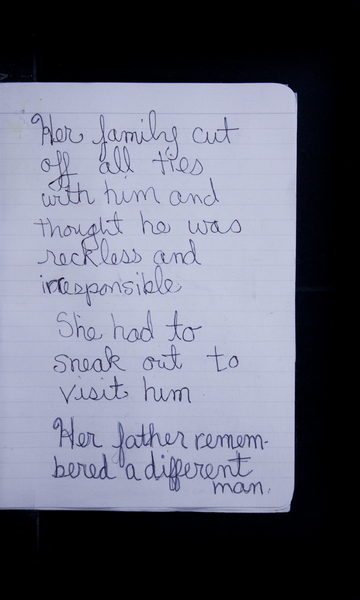 Her family cut
off all ties
with him and
thought he was
reckless and
irresponsible
She had to
sneak out to
visit him
Her father remem-
bered a different
man.